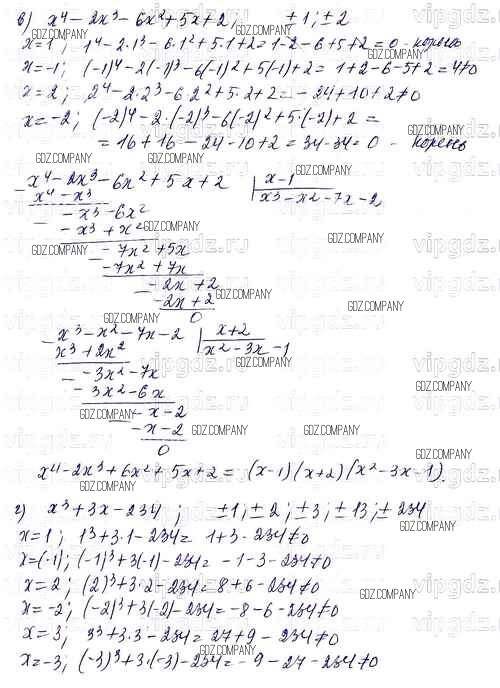 в) x⁴ - 2x³ - 6x² + 5x + 2 ; ±1; ±2
x=1 ; 1⁴ - 2·1³ - 6·1² + 5·1 + 2 = 1-2-6+5+2 = 0 - корень
x=-1; (-1)⁴ - 2(-1)³ - 6(-1)² + 5(-1) + 2 = 1+2-6-5+2 = 4≠0
x=2; 2⁴ - 2·2³ - 6·2² + 5·2 + 2 = -24+10+2≠0
x=-2; (-2)⁴ - 2·(-2)³ - 6(-2)² + 5·(-2) + 2 =
= 16+16-24-10+2 = 34-34 = 0 - корень
x⁴ - 2x³ - 6x² + 5x + 2 | x-1
x⁴ - x³ | x³ - x² - 7x - 2
- x³ - 6x²
- x³ + x²
- 7x² + 5x
- 7x² + 7x
- 2x + 2
- 2x + 2
0
x³ - x² - 7x - 2 | x+2
x³ + 2x² | x² - 3x - 1
- 3x² - 7x
- 3x² - 6x
- x - 2
- x - 2
0
x⁴ - 2x³ + 6x² + 5x + 2 = (x-1)(x+2)(x² - 3x - 1).
г) x³ + 3x - 234 ; ±1; ±2; ±3; ±13; ±234
x=1 ; 1³ + 3·1 - 234 = 1+3-234≠0
x=(-1); (-1)³ + 3(-1) - 234 = -1-3-234≠0
x=2; (2)³ + 3·2 - 234 = 8+6-234≠0
x=-2; (-2)³ + 3(-2) - 234 = -8-6-234≠0
x=3; 3³ + 3·3 - 234 = 27+9-234≠0
x=-3; (-3)³ + 3·(-3) - 234 = -9-27-234≠0
GDZ.COMPANY
vipgdz.ru